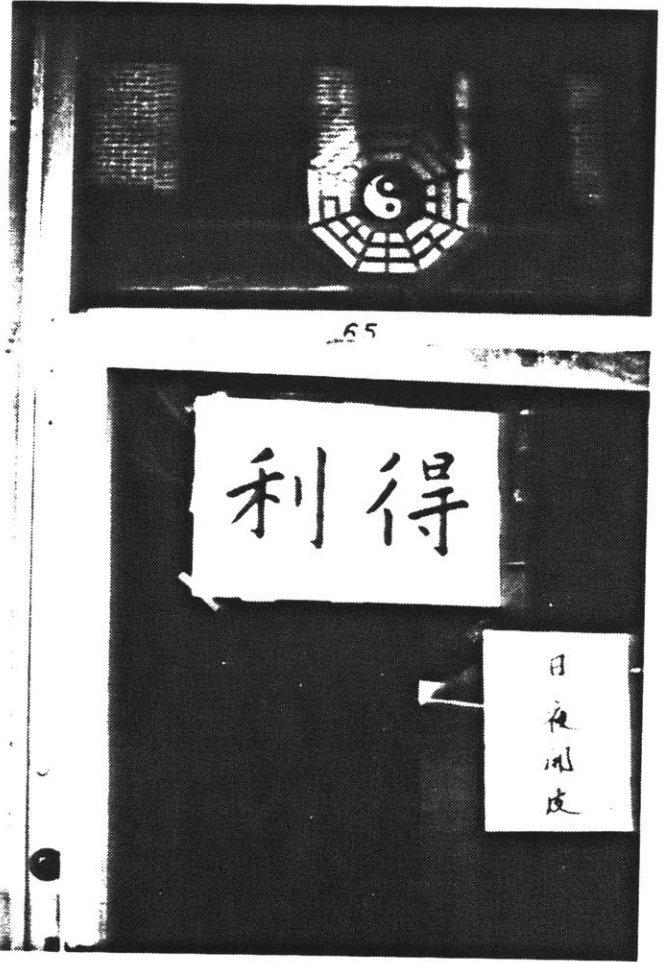 65
利得
日夜開皮